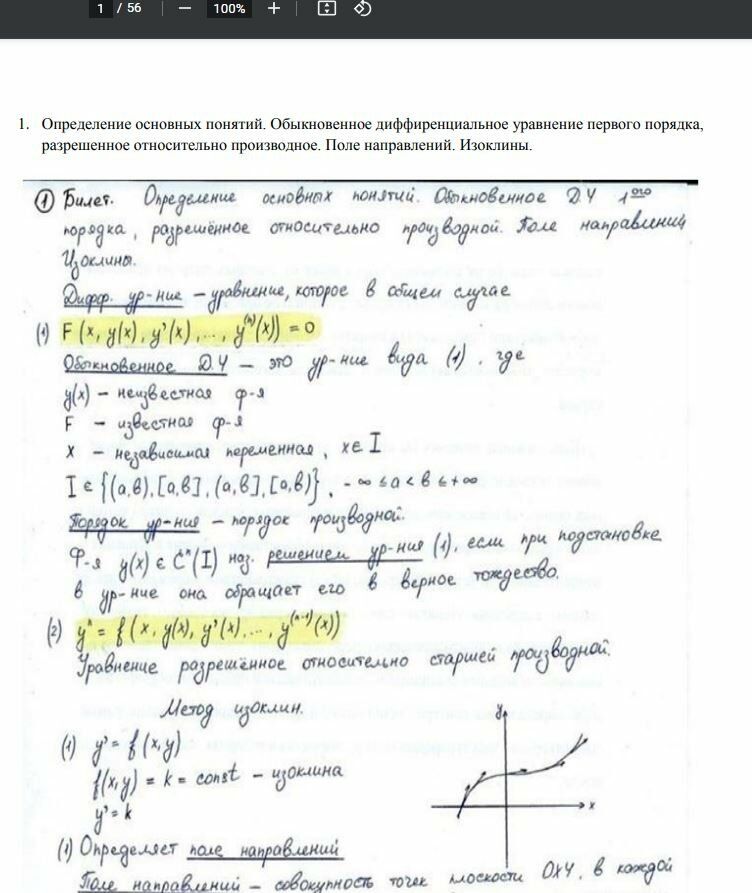 1 / 56 — 100% +
1. Определение основных понятий. Обыкновенное диффиренциальное уравнение первого порядка,
разрешенное относительно производное. Поле направлений. Изоклины.
① Билет. Определение основных понятий. Обыкновенное Д.У 1ого
порядка, разрешённое относительно производной. Поле направлений
Изоклины.
Дифф. ур-ние – уравнение, которое в общем случае
(1) F(x, y(x), y'(x), ..., y⁽ⁿ⁾(x)) = 0
Обыкновенное Д.У – это ур-ние вида (1), где
y(x) – неизвестная ф-я
F – известная ф-я
x – независимая переменная x∈I
I ∈ {(a,b), [a,b], (a,b], [a,b)}, -∞ ≤ a < b ≤ +∞
Порядок ур-ния – порядок производной.
Ф-я y(x) ∈ Cⁿ(I) наз. решением ур-ния (1), если при подстановке
в ур-ние она обращает его в верное тождество.
(2) yⁿ = f(x, y(x), y'(x), ..., y⁽ⁿ⁻¹⁾(x))
Уравнение разрешённое относительно старшей производной.
Метод изоклин.
(1) y' = f(x,y)
f(x,y) = k = const – изоклина
y' = k
y
x
(1) Определяет поле направлений
Поле направлений – совокупность точек плоскости OXY, в каждой